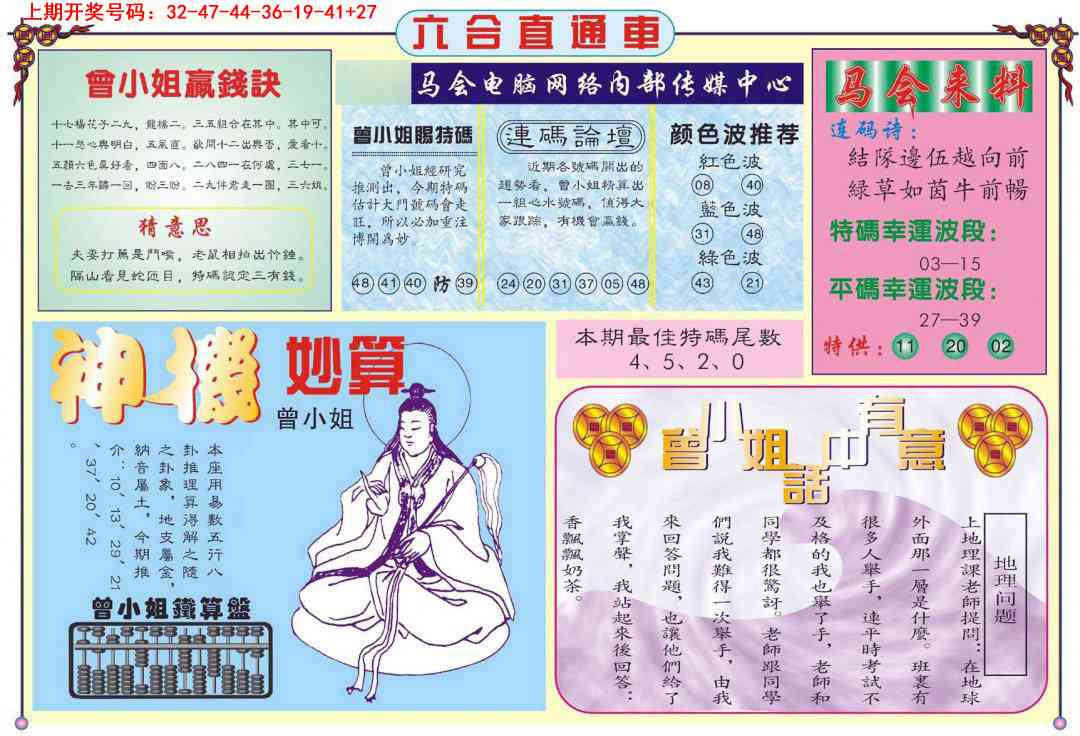 上期开奖号码：32-47-44-36-19-41+27
六合直通車
马会电脑网络内部传媒中心
曾小姐贏錢訣
十七楊花子二九，龍椽二。三五組合在其中。其中可。
十一思心與明白，五風直。欲開十二出與否，愛看十。
五顏六色真好看，四面八。二八四一在何處，三七一。
一去三年歸一回，盼三盼。二九伴君走一圈，三六姐。
猜意思
夫妻打罵是鬥嘴，老鼠相拍出竹錘。
隔山看見蛇四目，特碼認定三有錢。
曾小姐賜特碼
曾小姐經研究
推測出，今期特碼
估計大門號碼會走
旺，所以必加重注
博開為妙
48 41 40 防 39
連碼論壇
近期各號碼開出的
趨勢看，曾小姐精算出
一組心水號碼，值得大
家跟踪，有機會贏錢。
24 20 31 37 05 48
颜色波推荐
紅色波
08 40
藍色波
31 48
綠色波
43 21
马会来料
连码诗：
結隊邊伍越向前
緑草如茵牛前暢
特碼幸運波段：
03—15
平碼幸運波段：
27—39
特供：11 20 02
本期最佳特碼尾數
4、5、2、0
神機妙算
曾小姐
本座用易數五行八
卦推理算得解之隨
之卦象，地支屬金，
納音屬土，今期推
介：10，13，29，21
，37，20，42
。
曾小姐鐵算盤
曾小姐話中有意
地理问题
上地理課老師提問：在地球
外面那一層是什麼。班裏有
很多人舉手，連平時考試不
及格的我也舉了手，老師和
同學都很驚訝。老師跟同學
們説我難得一次舉手，由我
來回答問題，也讓他們給了
我掌聲，我站起來後回答：
香飄飄奶茶。